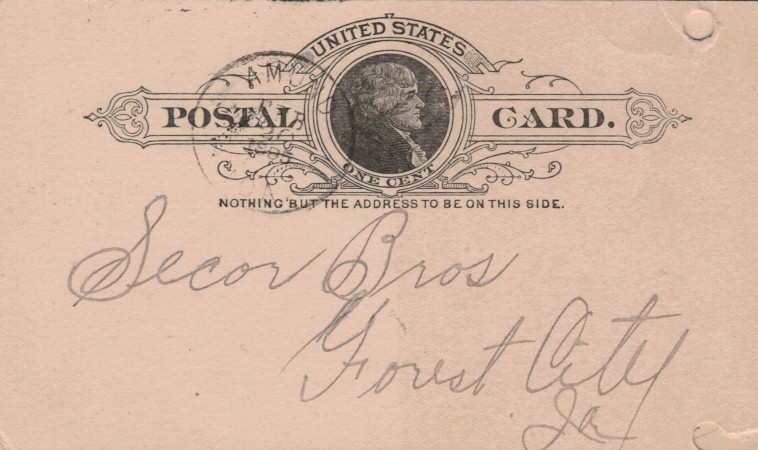 UNITED STATES
POSTAL CARD.
ONE CENT
NOTHING BUT THE ADDRESS TO BE ON THIS SIDE.
Secor Bros
Forest City
Ia